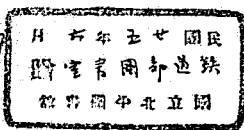 民國廿五年六月
鐵道部圖書室贈
國立北平圖書館